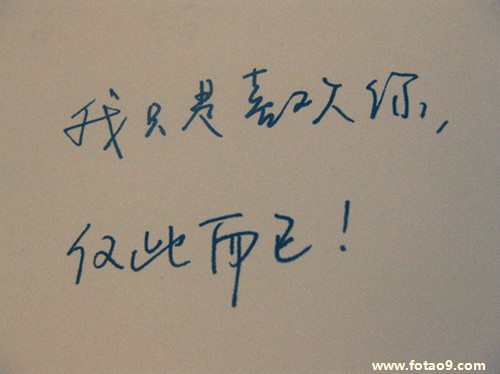 我只是喜欢你，
仅此而已！
www.fotao9.com